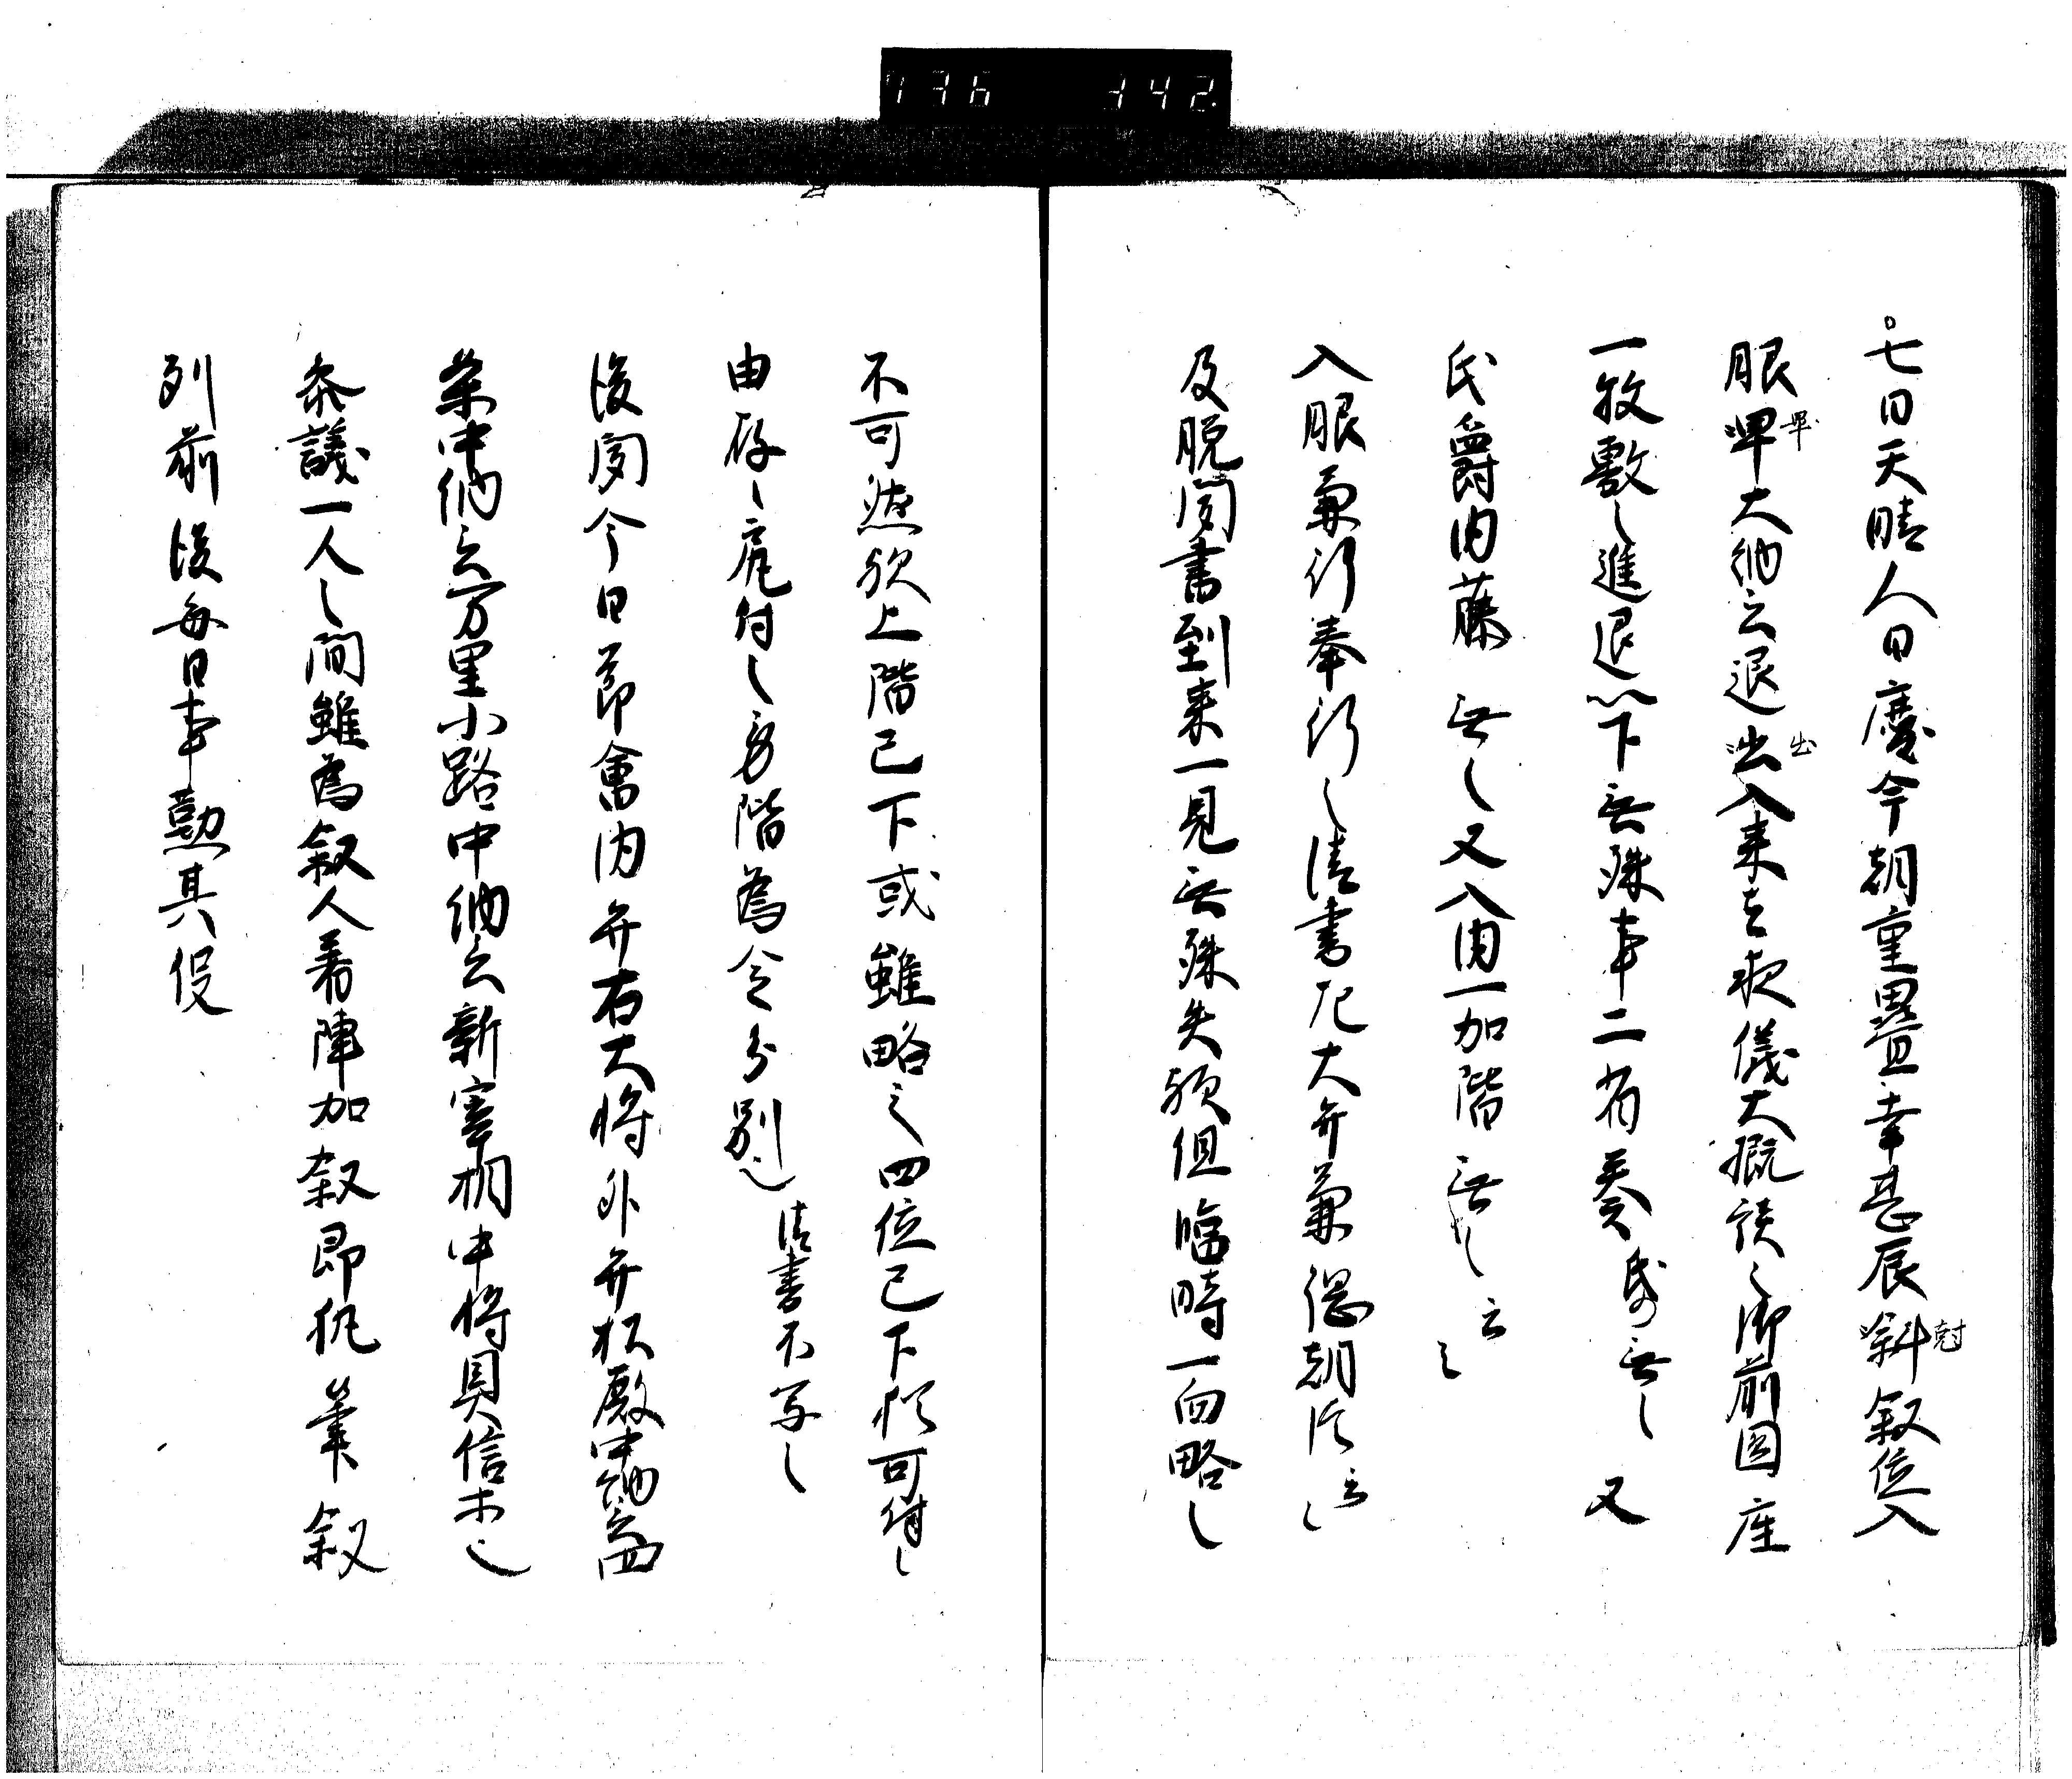 136 342
七日天晴人日慶今朝重畳幸甚辰斜尅叙位入
眼畢大納言退出入来之夜儀大概談之御前円座
一枚敷之進退以下無殊事二省奏氏無之又
氏爵内藤無之又入内一加階無之云々
入眼兼行奉行之清書左大弁兼
及晩聞書到来一見無殊失歟但臨時一向略之
不可然歟上階已下或雖略之四位已下次可付之
由存之処付之身階為令分別也清書不写之
後聞今日節会内弁右大将外弁按殿中納言四
条中納言万里小路中納言新宰相中将具信等也
参議一人之間雖為叙人着陣加叙即執筆叙
列前後毎日事勲其役